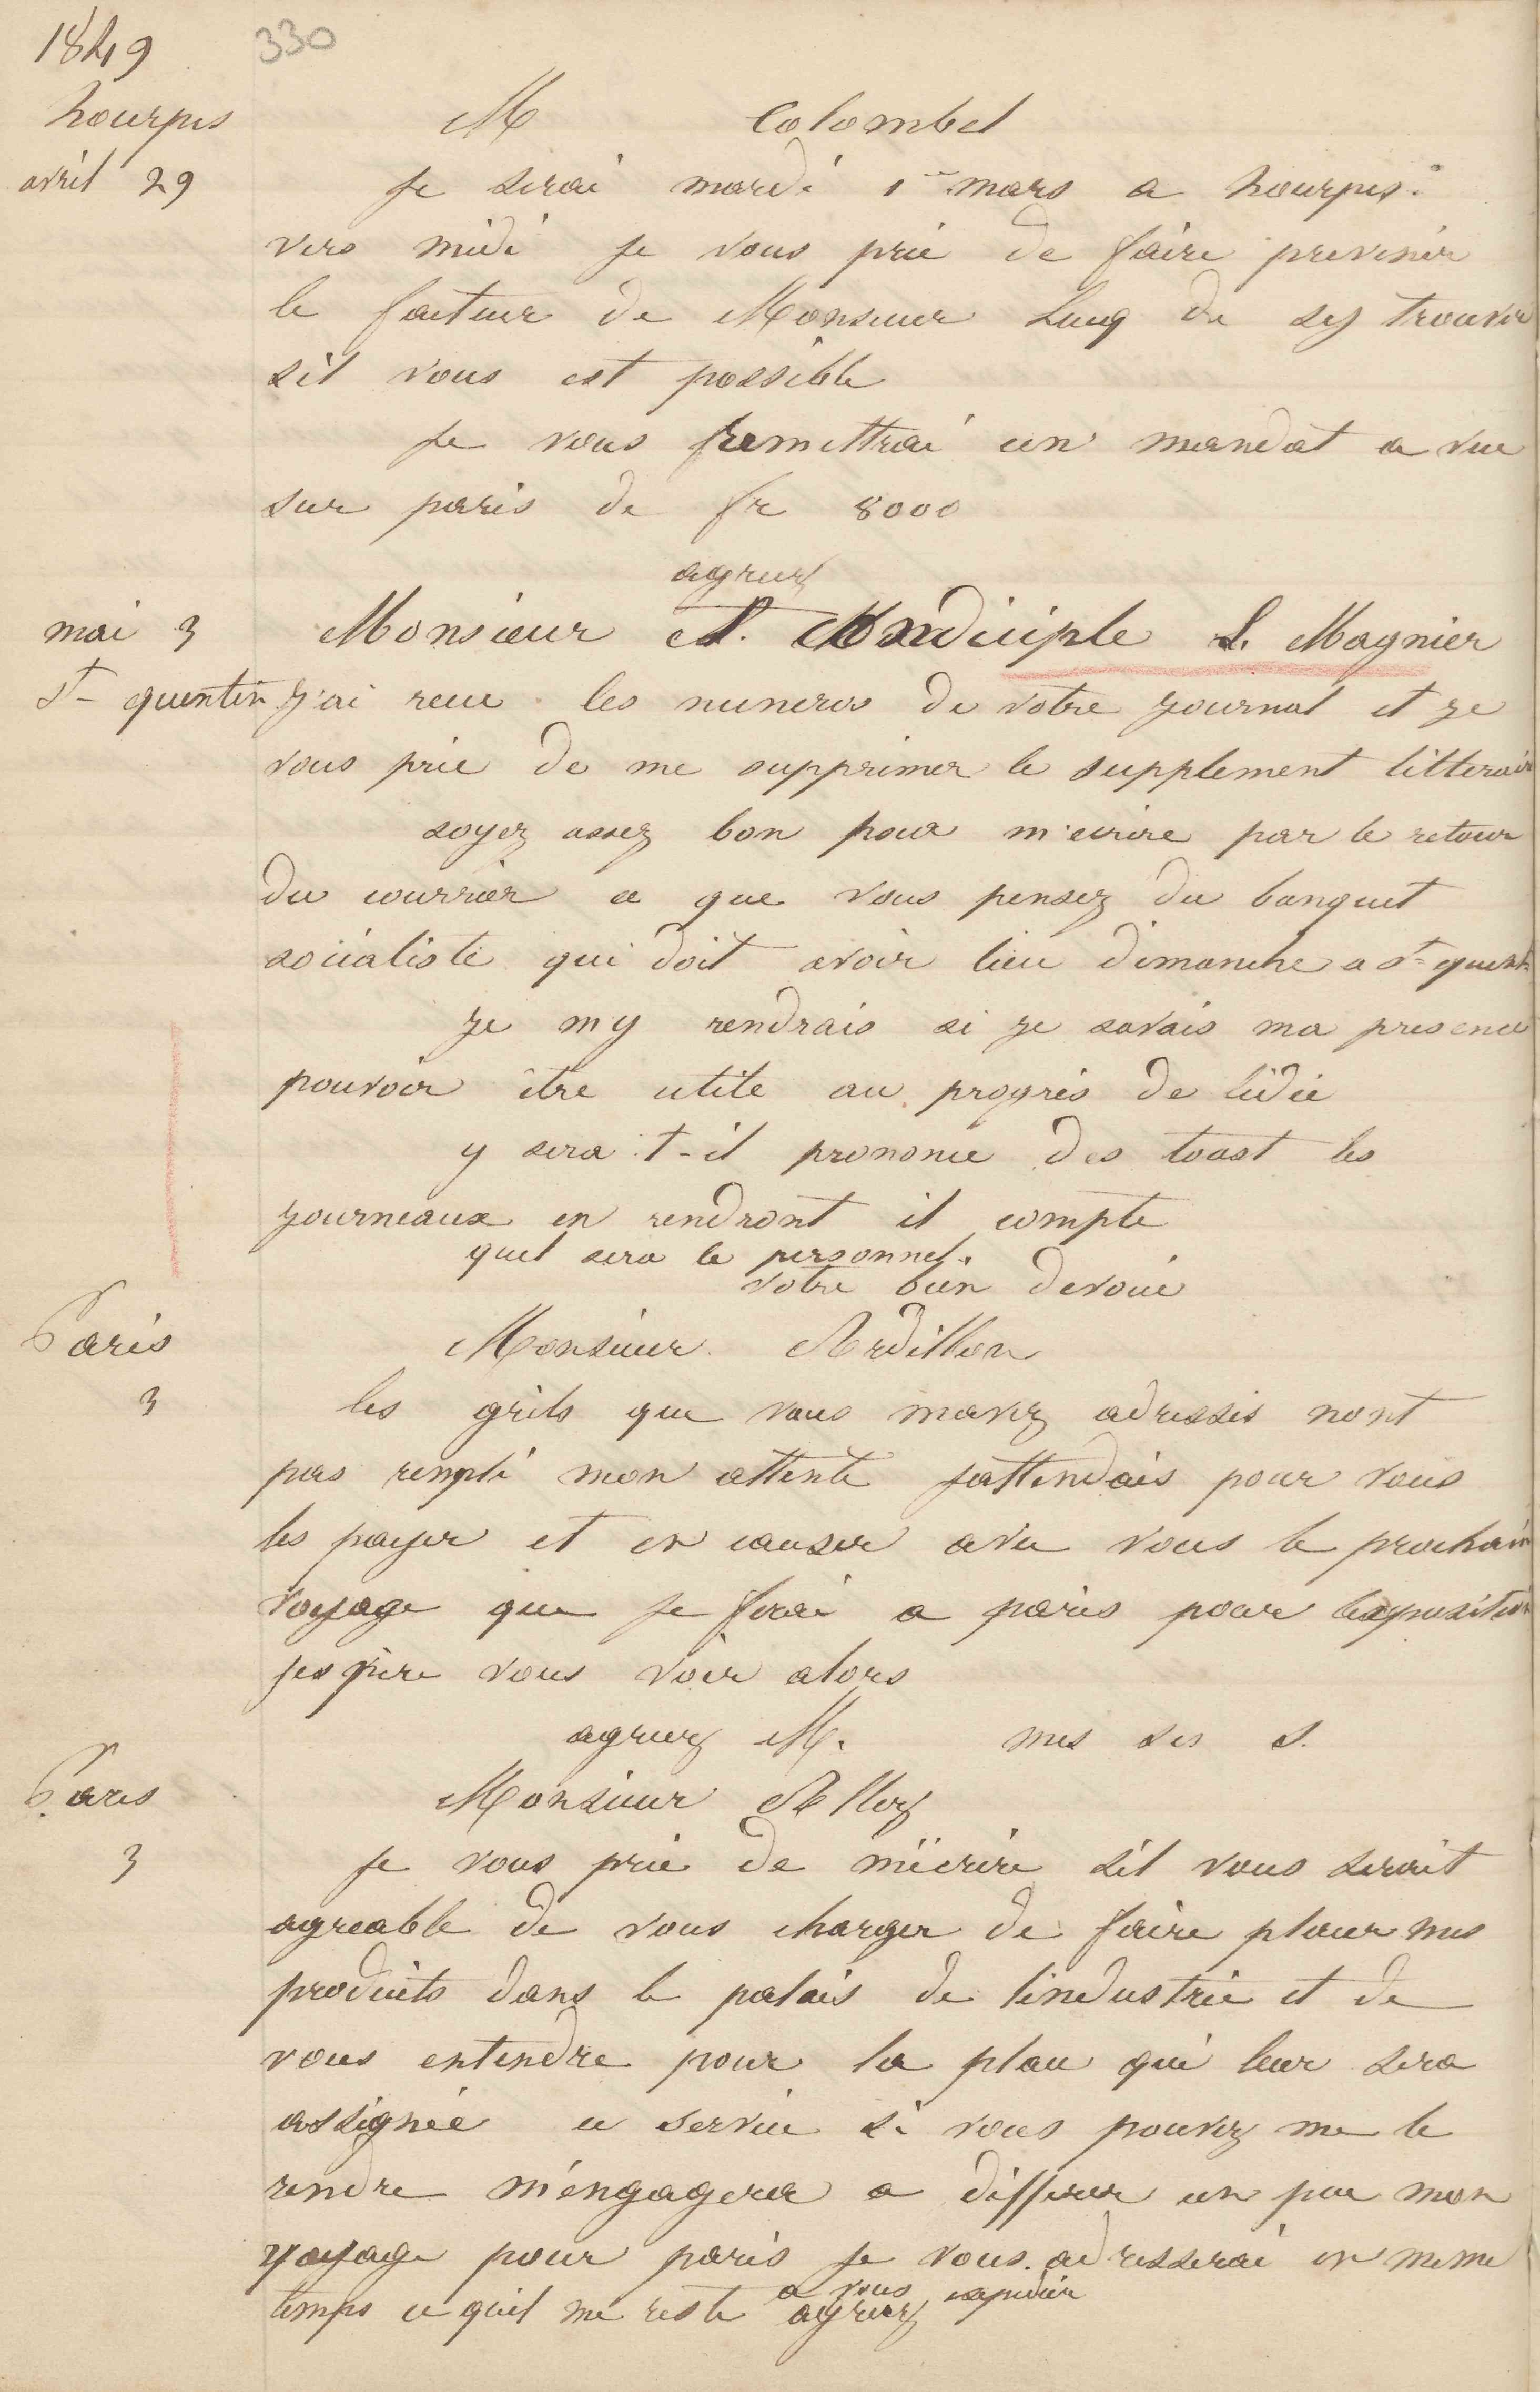 1849
330
hourpes
M Colombel
avril 29
Je serai mardi 1er mars a hourpes.
vers midi Je vous prie de faire prevenir
le facteur de Monsieur Lucq de sy trouver
sil vous est possible
Je vous remettrai un mandat a vue
sur paris de fr 8000
agreez
mai 3
Monsieur L. Magnier
St quentin
J'ai recu les numeros de votre journal et je
vous prie de me supprimer le supplement litterair
soyez assez bon pour m'ecrire par le retour
du courrier ce que vous pensez du banquet
socialiste qui doit avoir lieu dimanche a St quent
je my rendrais si je savais ma presence
pouvoir être utile au progrès de lidée
y sera-t-il prononce des toast les
journeaux en rendront il compte
quel sera le personnel.
votre bien devoué
Paris
Monsieur Ardillon
3
les grils que vous mavez adressés nont
pas rempli mon attente Jattendais pour vous
les payer et en causer avec vous le prochain
voyage que je ferai a paris pour lexposition
jespère vous voir alors
agreez M. mes ses s.
Paris
Monsieur Allez
3
Je vous prie de m'écrire sil vous serait
agreable de vous charger de faire placer mes
produits dans le palais de lindustrie et de
vous entendre pour la place qui leur sera
assignée ce service si vous pouvez me le
rendre m'engagera a differer un peu mon
voyage pour paris je vous adresserai en meme
temps ce quil me reste a vous expedier
agreez